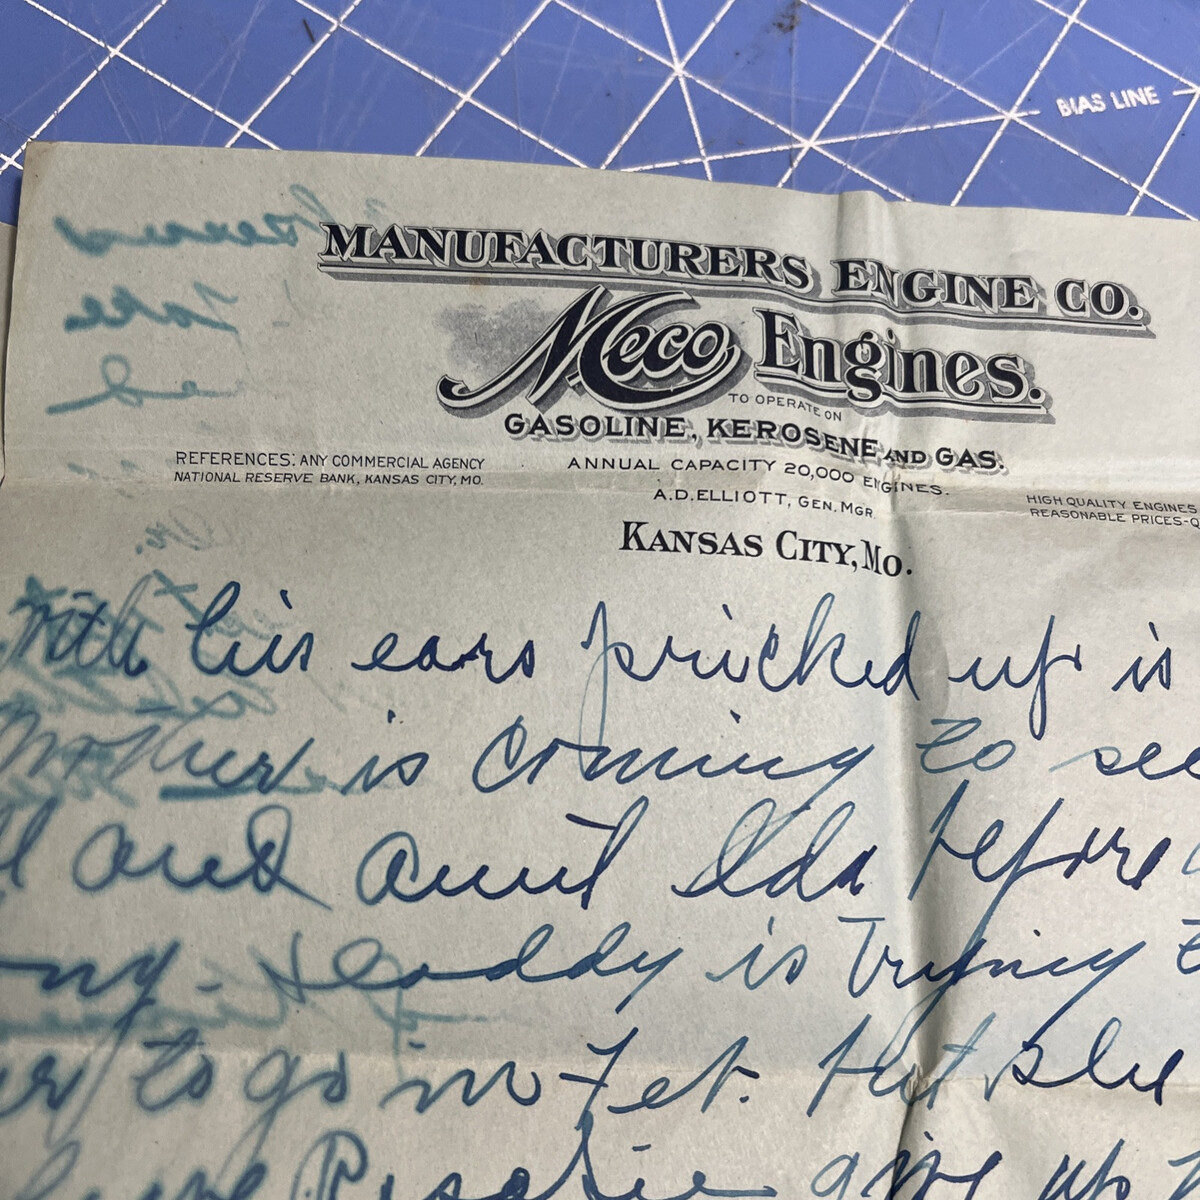 BIAS LINE
MANUFACTURERS ENGINE CO.
Meco Engines.
TO OPERATE ON
GASOLINE, KEROSENE AND GAS.
REFERENCES: ANY COMMERCIAL AGENCY
NATIONAL RESERVE BANK, KANSAS CITY, MO.
ANNUAL CAPACITY 20,000 ENGINES.
A.D. ELLIOTT, GEN. MGR.
HIGH QUALITY ENGINES
REASONABLE PRICES-Q
KANSAS CITY, MO.
with his ears pricked up is
Mother is coming to see
and aunt Ida before
ong. Daddy is trying t
er to go in Feb. but she
Rosalie give up